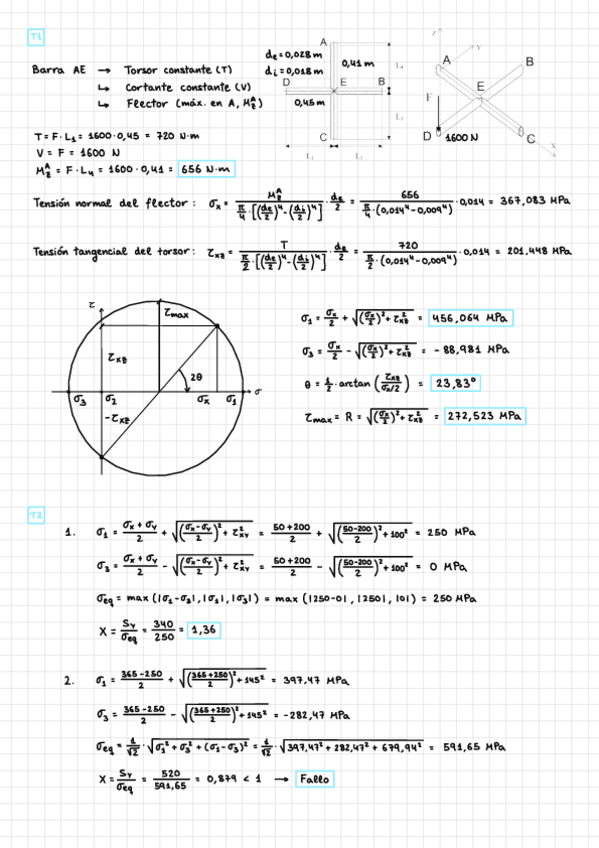 T1
Barra AE → Torsor constante (T)
↳ Cortante constante (V)
↳ Flector (máx. en A, M_z^A)
de = 0,028 m
di = 0,018 m
A
0,41 m
L₄
D
E
B
0,45 m
C
L₃
L₁
L₂
y
z
A
B
E
F
D
1600 N
C
x
T = F · L₁ = 1600 · 0,45 = 720 N·m
V = F = 1600 N
M_z^A = F · L₄ = 1600 · 0,41 = 656 N·m
Tensión normal del flector : σx = M_z^A / (π/4 · [(de/2)⁴ - (di/2)⁴]) · de/2 = 656 / (π/4 · (0,014⁴ - 0,009⁴)) · 0,014 = 367,083 MPa
Tensión tangencial del torsor : τxz = T / (π/2 · [(de/2)⁴ - (di/2)⁴]) · de/2 = 720 / (π/2 · (0,014⁴ - 0,009⁴)) · 0,014 = 201,448 MPa
τ
τmax
τxz
2θ
σ3
σ2
σx
σ1
σ
-τxz
σ1 = σx/2 + √((σx/2)² + τxz²) = 456,064 MPa
σ3 = σx/2 - √((σx/2)² + τxz²) = - 88,981 MPa
θ = 1/2 · arctan (τxz / (σx/2)) = 23,83°
τmax = R = √((σx/2)² + τxz²) = 272,523 MPa
T2
1. σ1 = (σx + σy)/2 + √(((σx - σy)/2)² + τxy²) = (50 + 200)/2 + √(((50-200)/2)² + 100²) = 250 MPa
σ3 = (σx + σy)/2 - √(((σx - σy)/2)² + τxy²) = (50 + 200)/2 - √(((50-200)/2)² + 100²) = 0 MPa
σeq = max (|σ1 - σ3|, |σ1|, |σ3|) = max (|250-0|, |250|, |0|) = 250 MPa
X = Sy/σeq = 340/250 = 1,36
2. σ1 = (365 - 250)/2 + √(((365 + 250)/2)² + 145²) = 397,47 MPa
σ3 = (365 - 250)/2 - √(((365 + 250)/2)² + 145²) = -282,47 MPa
σeq = 1/√2 · √(σ1² + σ3² + (σ1 - σ3)²) = 1/√2 · √(397,47² + 282,47² + 679,94²) = 591,65 MPa
X = Sy/σeq = 520/591,65 = 0,879 < 1 → Fallo